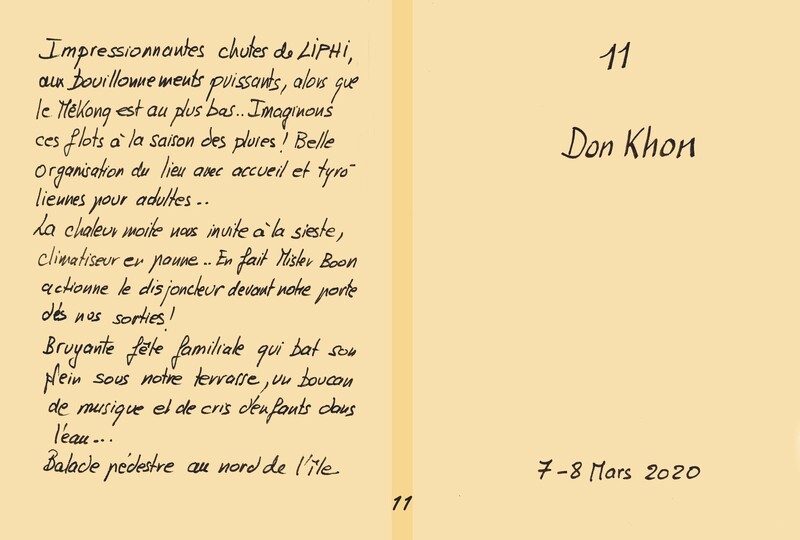 Impressionnantes chutes de LiPHi,
aux bouillonnements puissants, alors que
le Mékong est au plus bas.. Imaginons
ces flots à la saison des pluies ! Belle
organisation du lieu avec accueil et tyro-
liennes pour adultes..
La chaleur moite nous invite à la sieste,
climatiseur en panne.. En fait Mister Boon
actionne le disjoncteur devant notre porte
dès nos sorties !
Bruyante fête familiale qui bat son
plein sous notre terrasse, un boucan
de musique et de cris d'enfants dans
l'eau...
Balade pédestre au nord de l'île
11
11
Don Khon
7-8 Mars 2020